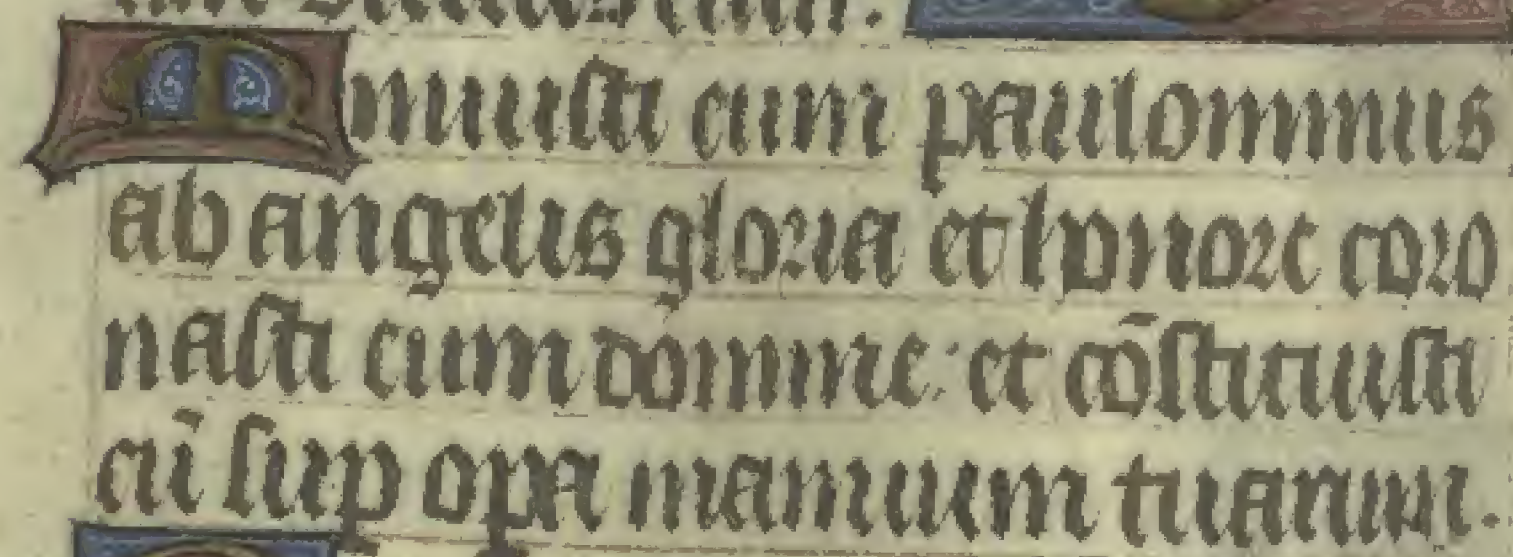 Minuisti eum paulominus
ab angelis gloria et honore coro
nasti eum domine: et cōstituisti
eū suꝑ oꝑa manuum tuarum.